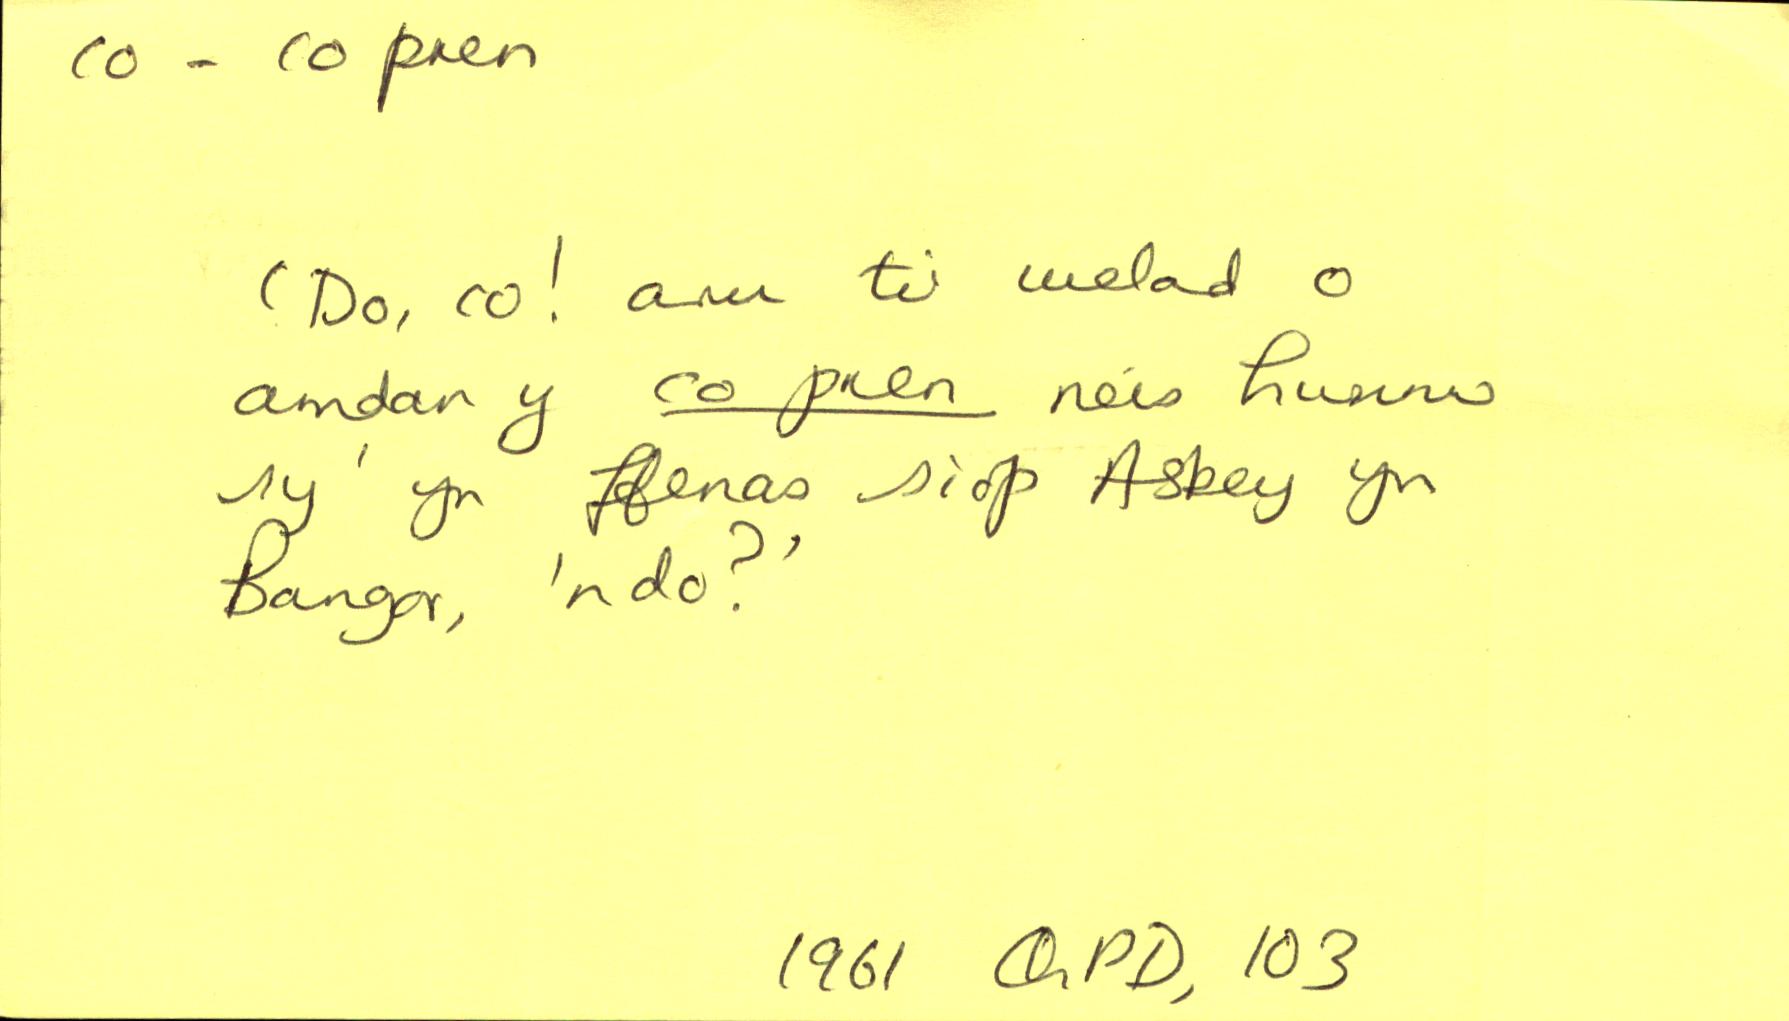 co - co pren
'Do, co! aru ti welad o
amdan y co pren neis hwnnw
sy' yn ffenas siop Askey yn
Bangor, 'ndo?'
1961 PD, 103